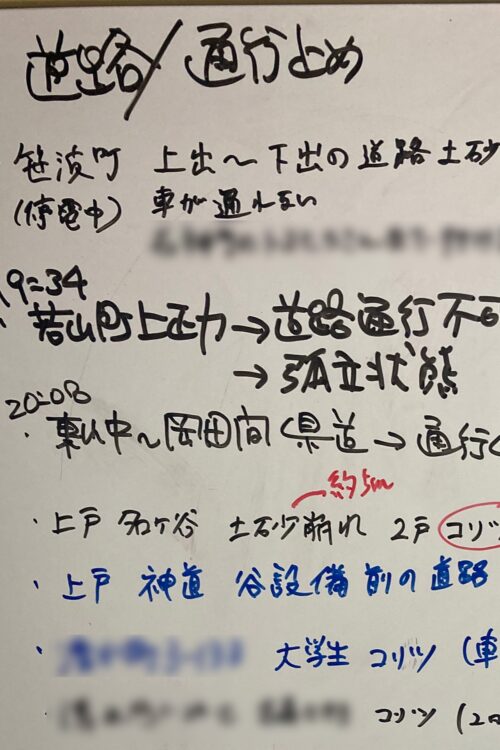 道路/通行止め
笹波町 上出〜下出の道路土砂
(停電中) 車が通れない
19:34
若山町上正力→道路通行不可
→孤立状態
20:08
・東山中〜岡田間県道→通行
約5m
・上戸 名ヶ谷 土砂崩れ 2戸 コリツ
・上戸 神道 谷設備前の道路
・ 大学生 コリツ (車
コリツ (2